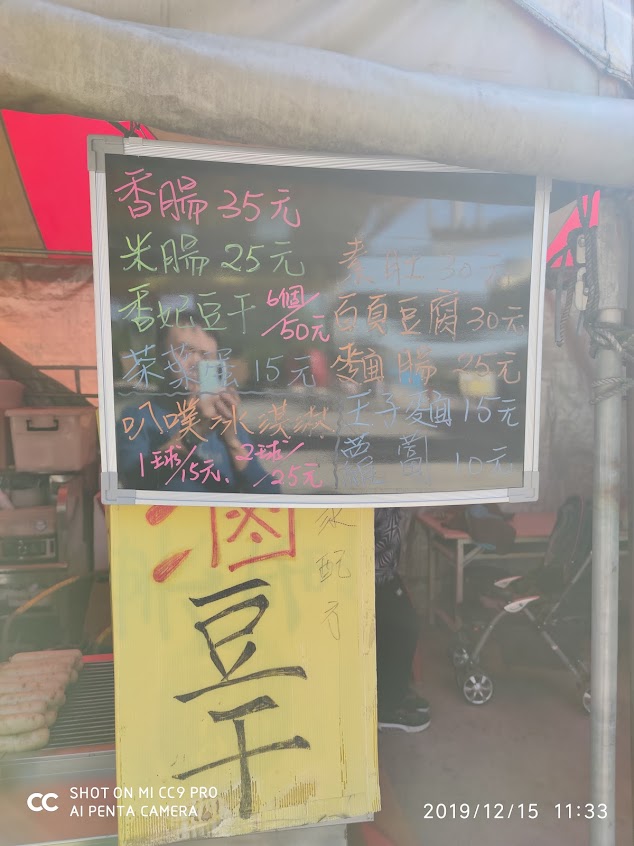 香腸 35元
米腸 25元
香妃豆干 6個/50元
茶葉蛋 15元
叭噗冰淇淋
1球/15元. 2球/25元
素肚 30元
百頁豆腐 30元
麵腸 25元
王子麵 15元
蘿蔔 10元
滷豆干
家配方
CC SHOT ON MI CC9 PRO
AI PENTA CAMERA
2019/12/15 11:33